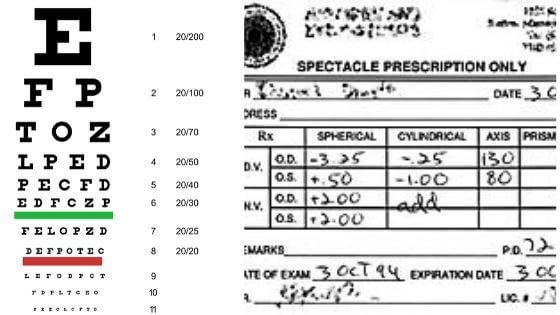 E 1 20/200
F P 2 20/100
T O Z 3 20/70
L P E D 4 20/50
P E C F D 5 20/40
E D F C Z P 6 20/30
F E L O P Z D 7 20/25
D E F P O T E C 8 20/20
L E F O D P C T 9
F D P L T C E O 10
P E Z O L C F T D 11
SPECTACLE PRESCRIPTION ONLY
DATE 3 O
DRESS
Rx SPHERICAL CYLINDRICAL AXIS PRISM
D.V. O.D. -3.25 -.25 130
O.S. +.50 -1.00 80
N.V. O.D. +2.00 add
O.S. +2.00
EMARKS P.D. 72
ATE OF EXAM 3 OCT 94 EXPIRATION DATE 3 OC
R. LIC. #